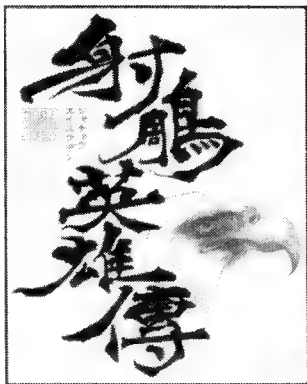 射鵰英雄傳